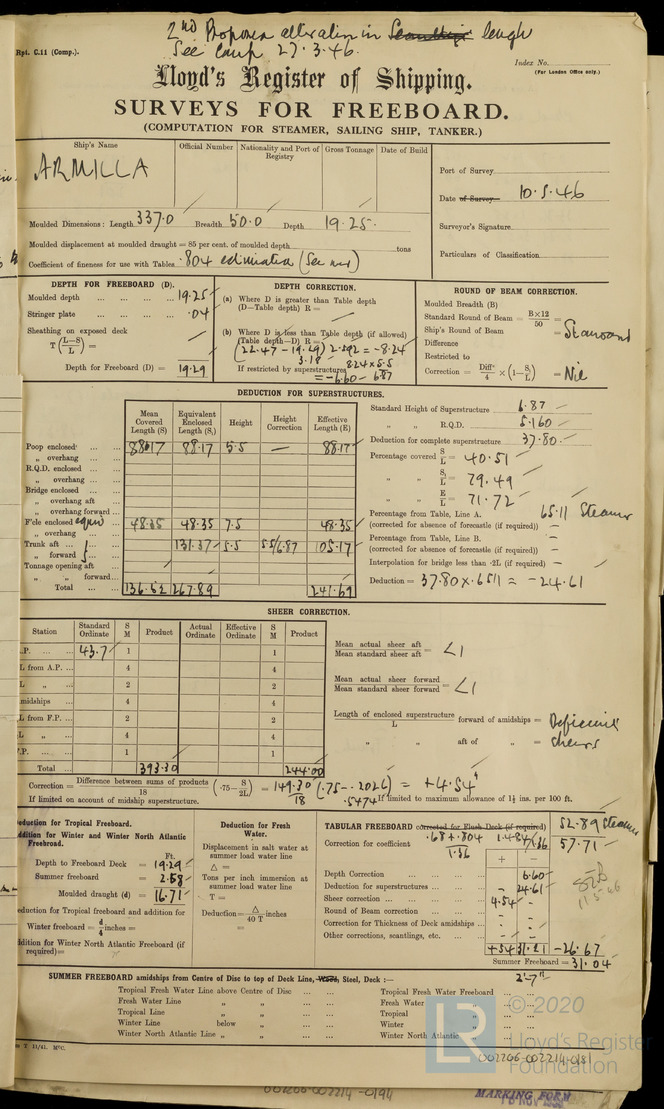 2nd Proposed alteration in Scantlings length
See Comp 27.3.46.
Rpt. C.11 (Comp.).
Index No.
(For London Office only.)
Lloyd's Register of Shipping.
SURVEYS FOR FREEBOARD.
(COMPUTATION FOR STEAMER, SAILING SHIP, TANKER.)
Ship's Name Official Number Nationality and Port of Registry Gross Tonnage Date of Build
ARMILLA
Port of Survey
Date of Survey 10.5.46
Surveyor's Signature
Particulars of Classification
Moulded Dimensions: Length 337.0 Breadth 50.0 Depth 19.25
Moulded displacement at moulded draught = 85 per cent. of moulded depth tons
Coefficient of fineness for use with Tables .804 estimated
DEPTH FOR FREEBOARD (D).
Moulded depth ... 19.25
Stringer plate ... .04
Sheathing on exposed deck
T(L-S/L) =
Depth for Freeboard (D) = 19.29
DEPTH CORRECTION.
(a) Where D is greater than Table depth
(D-Table depth) R =
(b) Where D is less than Table depth (if allowed)
(Table depth-D) R =
(22.47 - 19.29) 2.592 = -8.24
3.18
8.24 x 5.5
If restricted by superstructures
= -6.60 6.87
ROUND OF BEAM CORRECTION.
Moulded Breadth (B)
Standard Round of Beam = B×12/50 =
Ship's Round of Beam = Standard
Difference
Restricted to
Correction = Diffce/4 × (1-S₁/L) = Nil
DEDUCTION FOR SUPERSTRUCTURES.
Mean Covered Length (S) Equivalent Enclosed Length (S₁) Height Height Correction Effective Length (E)
Poop enclosed 88.17 88.17 5.5 — 88.17
„ overhang
R.Q.D. enclosed
„ overhang
Bridge enclosed
„ overhang aft
„ overhang forward
F'cle enclosed equiv 48.35 48.35 7.5 48.35
„ overhang
Trunk aft 131.37 5.5 5.5/6.87 105.17
„ forward
Tonnage opening aft
„ „ forward
Total 136.52 267.89 241.69
Standard Height of Superstructure 6.87
„ „ R.Q.D. 5.160
Deduction for complete superstructure 37.80
Percentage covered S/L = 40.51
„ „ S₁/L = 79.49
„ „ E/L = 71.72
Percentage from Table, Line A. 65.11 Steamer
(corrected for absence of forecastle (if required))
Percentage from Table, Line B.
(corrected for absence of forecastle (if required))
Interpolation for bridge less than ·2L (if required)
Deduction = 37.80 x .6511 = -24.61
SHEER CORRECTION.
Station Standard Ordinate S M Product Actual Ordinate Effective Ordinate S M Product
.P. 43.7 1 1
L from A.P. 4 4
L „ 2 2
midships 4 4
L from F.P. 2 2
L „ 4 4
.P. 1 1
Total 393.30 244.00
Mean actual sheer aft
Mean standard sheer aft = <1
Mean actual sheer forward
Mean standard sheer forward = <1
Length of enclosed superstructure/L forward of amidships = Deficient
„ „ aft of „ = sheers
Correction = Difference between sums of products/18 (·75-S/2L) = 149.30/18 (.75-.2026) = +4.54"
.5474
If limited on account of midship superstructure.
If limited to maximum allowance of 1½ ins. per 100 ft.
eduction for Tropical Freeboard.
ddition for Winter and Winter North Atlantic Freeboard.
Ft.
Depth to Freeboard Deck = 19.29
Summer freeboard = 2.58
Moulded draught (d) = 16.71
eduction for Tropical freeboard and addition for
Winter freeboard = d/4 inches =
ddition for Winter North Atlantic Freeboard (if required) =
Deduction for Fresh Water.
Displacement in salt water at summer load water line
Δ =
Tons per inch immersion at summer load water line
T =
Deduction = Δ/40 T inches
=
TABULAR FREEBOARD corrected for Flush Deck (if required) 52.89 Steamer
Correction for coefficient .68 + .804 / 1.36 1.484/1.36 57.71
+ −
Depth Correction 6.60
Deduction for superstructures - 24.61
Sheer correction 4.54 -
Round of Beam correction - -
Correction for Thickness of Deck amidships - -
Other corrections, scantlings, etc. - -
+4.54 31.21 -26.67
Summer Freeboard = 31.04
11.5.46
SUMMER FREEBOARD amidships from Centre of Disc to top of Deck Line, Wood, Steel, Deck :— 2'-7"
Tropical Fresh Water Line above Centre of Disc Tropical Fresh Water Freeboard
Fresh Water Line „ „ Fresh Water
Tropical Line „ „ Tropical
Winter Line below „ Winter
Winter North Atlantic Line „ „ Winter North Atlantic
LR © 2020
Lloyd's Register
Foundation
002206-002214-0181
002206-002214-0194
MARKING FORM